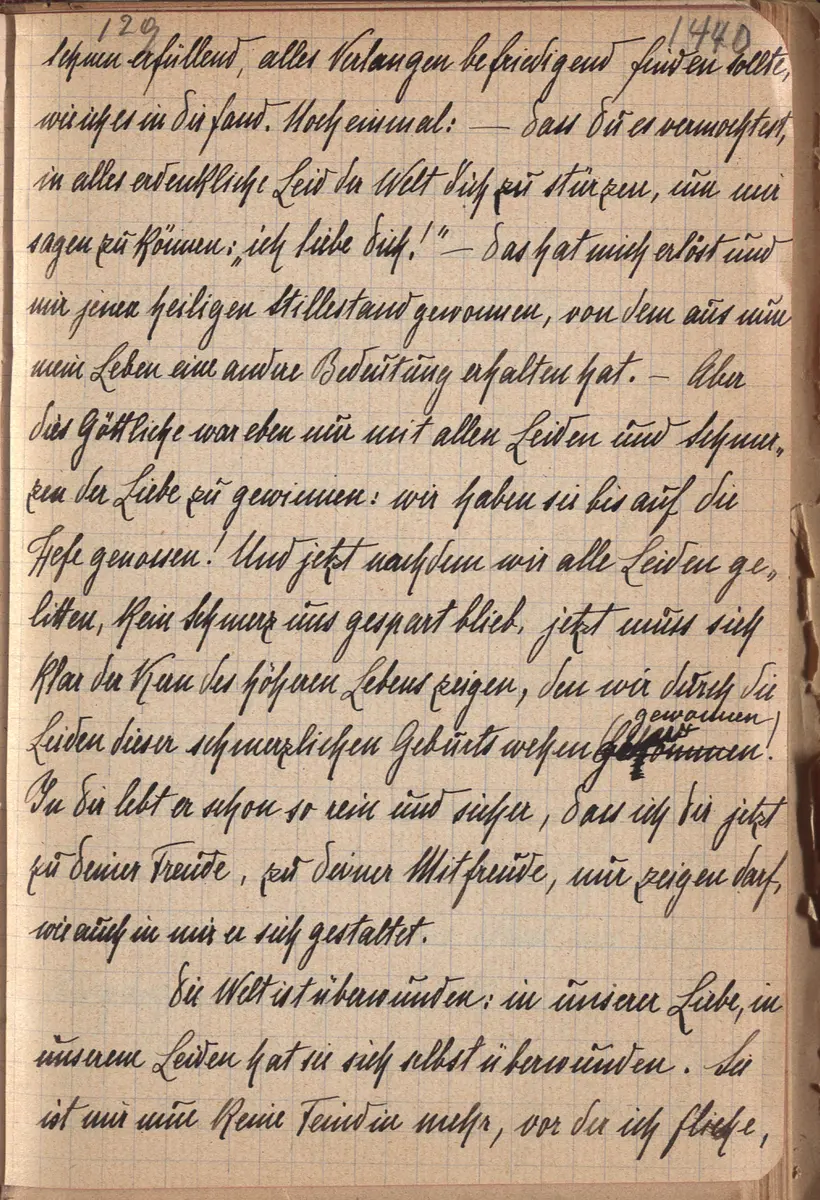 129 1440
Sehnen erfüllend, alles Verlangen befriedigend finden sollte,
wie ich es in dir fand. Noch einmal: — dass du es vermochtest,
in alles erdenkliche Leid der Welt dich zu stürzen, um mir
sagen zu können: „ich liebe dich!" — das hat mich erlöst und
mir jenen heiligen Stillestand gewonnen, von dem aus nun
mein Leben eine andre Bedeutung erhalten hat. — Aber
dies Göttliche war eben nur mit allen Leiden und Schmer„
zen der Liebe zu gewinnen: wir haben sie bis auf die
Hefe genossen! Und jetzt nachdem wir alle Leiden ge„
litten, kein Schmerz uns gespart blieb, jetzt muss sich
klar der Kern des höheren Lebens zeigen, den wir durch die
gewonnen
Leiden dieser schmerzlichen Geburtswehen!
In dir lebt er schon so rein und sicher, dass ich dir jetzt
zu deiner Freude, zu deiner Mitfreude, nur zeigen darf,
wie auch in mir er sich gestaltet.
Die Welt ist überwunden: in unserer Liebe, in
unserem Leiden hat sie sich selbst überwunden. Sie
ist mir nun keine Feindin mehr, vor der ich fliehe,